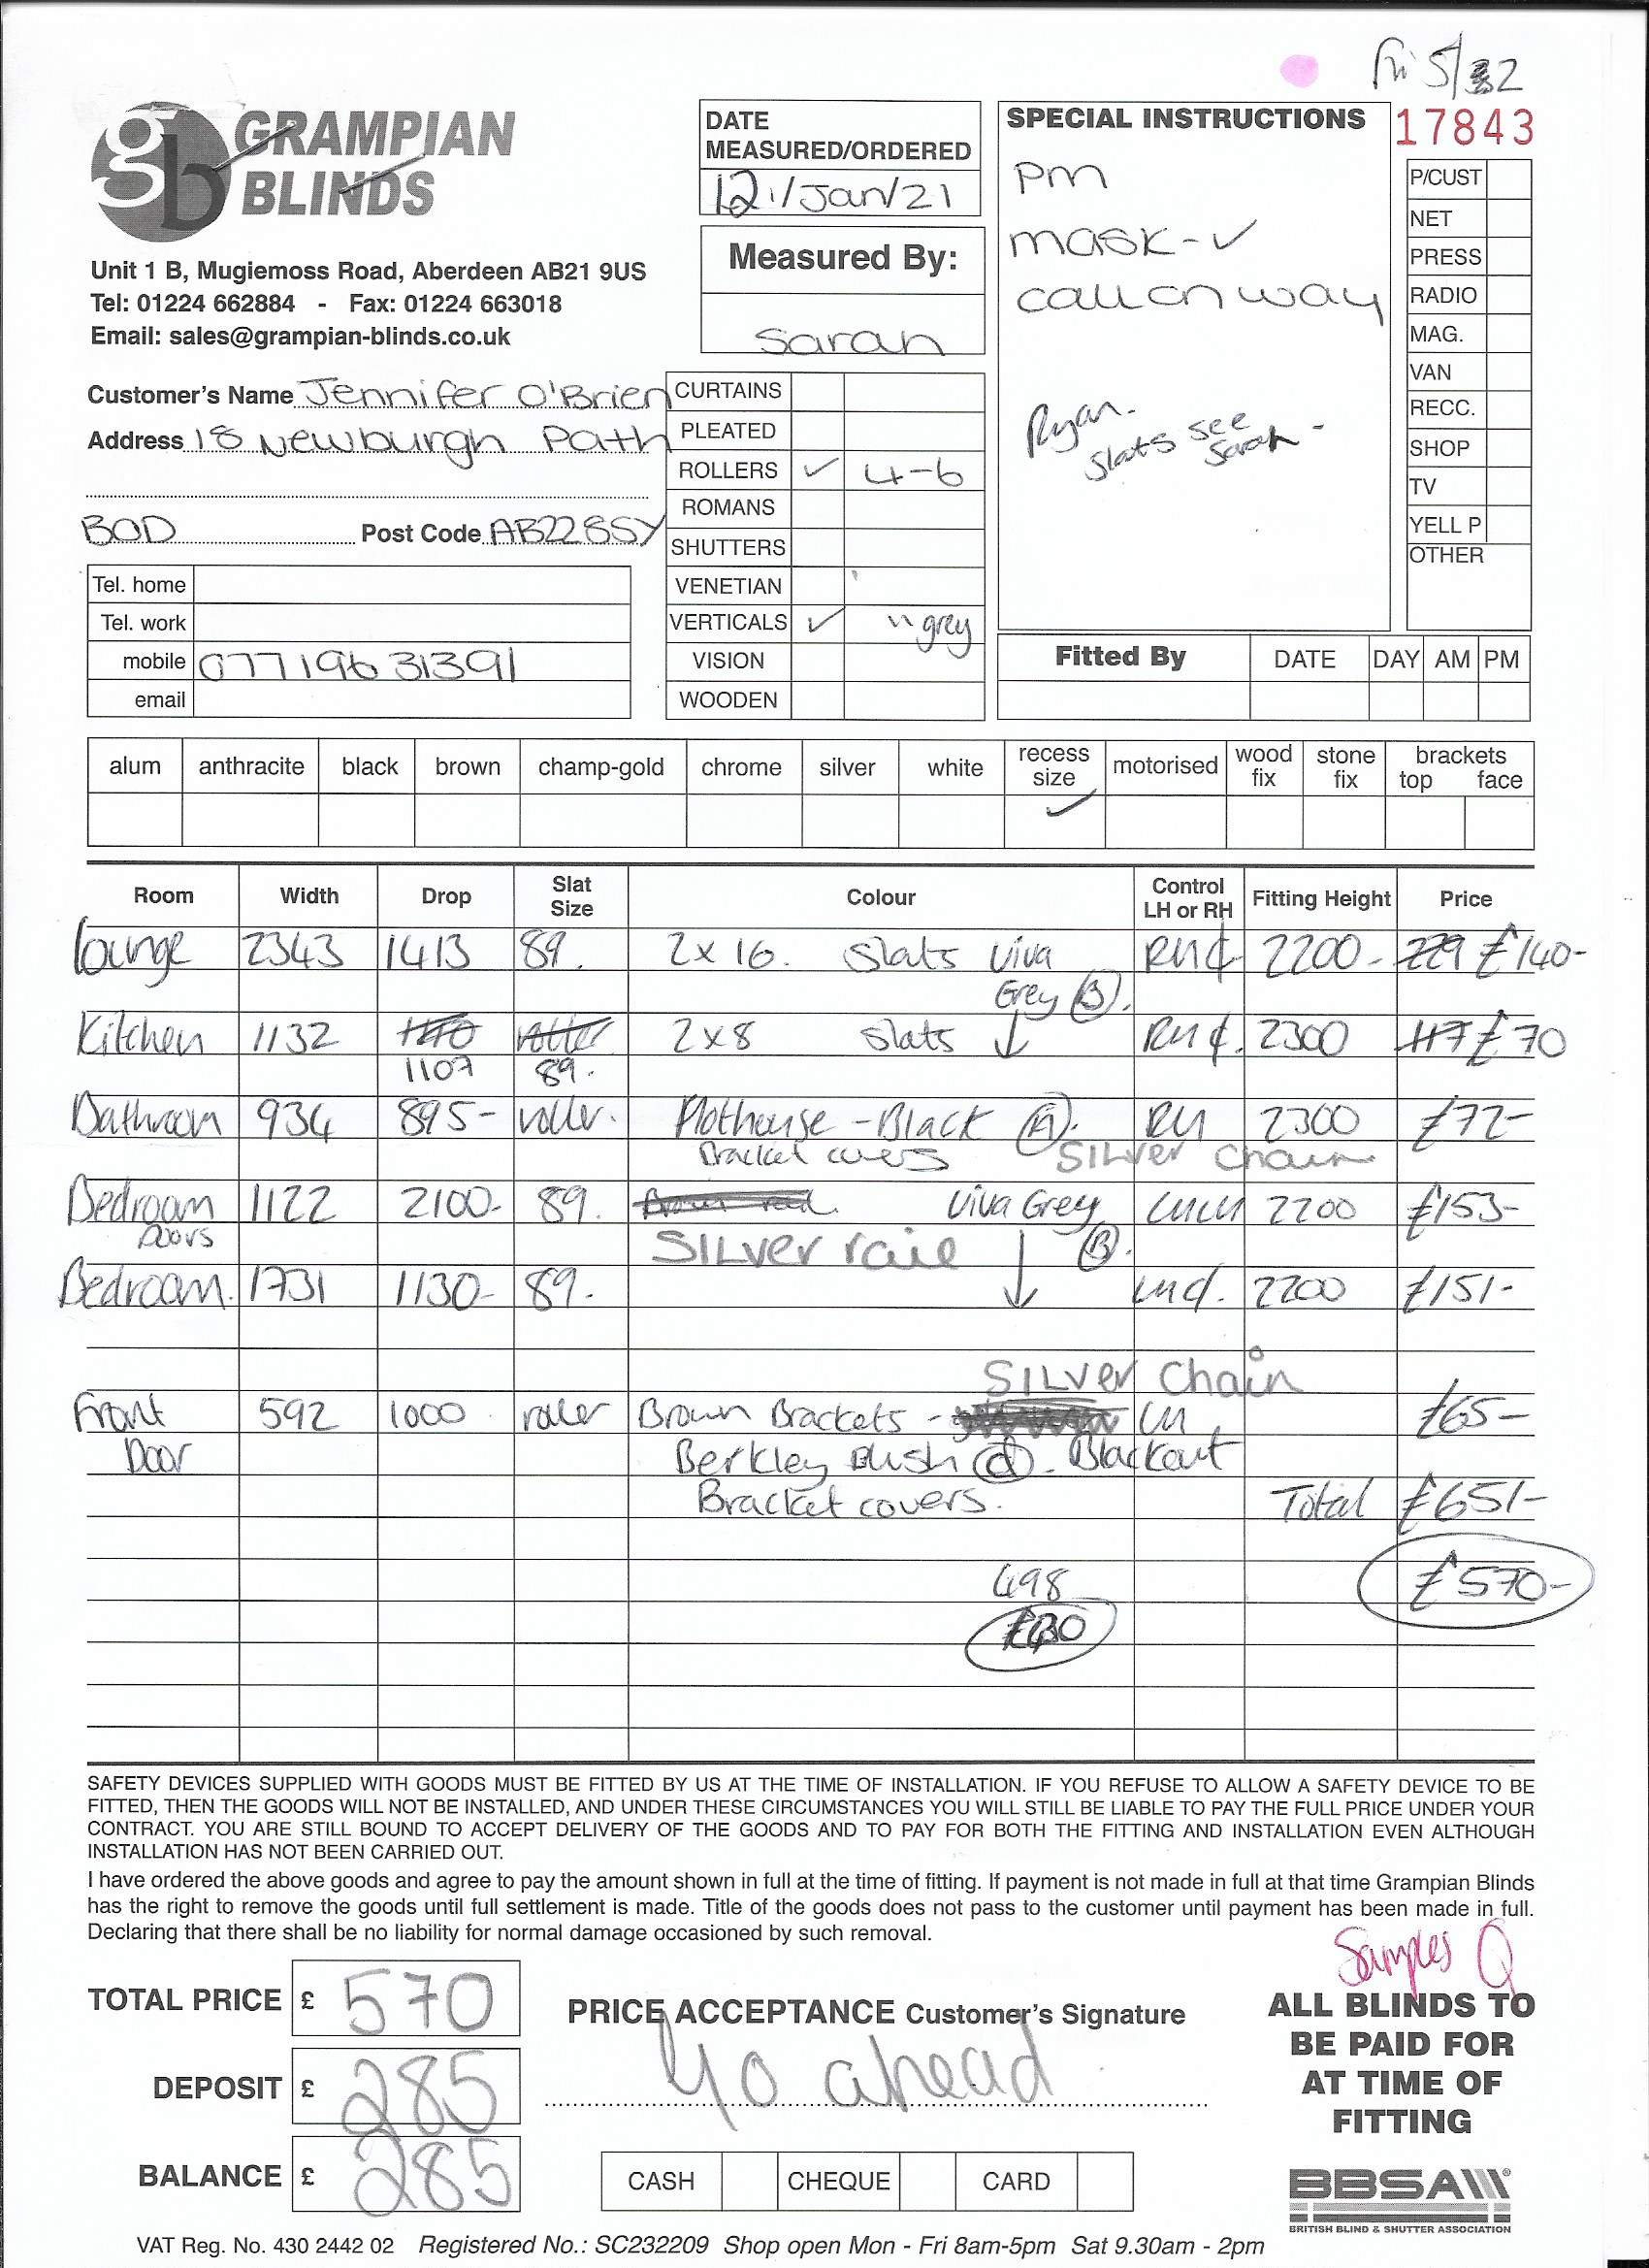 Fri 5/2
GRAMPIAN
BLINDS
gb
Unit 1 B, Mugiemoss Road, Aberdeen AB21 9US
Tel: 01224 662884 - Fax: 01224 663018
Email: sales@grampian-blinds.co.uk
DATE
MEASURED/ORDERED
12/Jan/21
Measured By:
Sarah
SPECIAL INSTRUCTIONS
pm
mask - ✓
call on way
Ryan.
slats see
Sarah -
17843
P/CUST
NET
PRESS
RADIO
MAG.
VAN
RECC.
SHOP
TV
YELL P
OTHER
Customer's Name Jennifer O'Brien
Address 18 Newburgh Path
BOD Post Code AB22 8SY
Tel. home
Tel. work
mobile 07719631391
email
CURTAINS
PLEATED
ROLLERS ✓ 4-6
ROMANS
SHUTTERS
VENETIAN
VERTICALS ✓ " grey
VISION
WOODEN
Fitted By DATE DAY AM PM
alum anthracite black brown champ-gold chrome silver white recess size motorised wood fix stone fix brackets top face
✓
Room Width Drop Slat Size Colour Control LH or RH Fitting Height Price
Lounge 2343 1413 89. 2x16. Slats Viva RH¢ 2200- 229 £140-
Grey (B).
Kitchen 1132 1107 89. 2x8 Slats ↓ RH¢. 2300 117 £70
Bathroom 934 895- roller. Plothouse - Black (A). RH 2300 £72-
Bracket covers Silver chain
Bedroom 1122 2100- 89. Viva Grey 2200 £153-
Doors Silver rail ↓ (B).
Bedroom. 1731 1130- 89. LH¢. 2200 £151-
Silver chain
Front 592 1000 roller Brown Brackets - LH £65-
Door Berkley Blush (d). Blackout
Bracket covers. Total £651-
498 £570-
SAFETY DEVICES SUPPLIED WITH GOODS MUST BE FITTED BY US AT THE TIME OF INSTALLATION. IF YOU REFUSE TO ALLOW A SAFETY DEVICE TO BE
FITTED, THEN THE GOODS WILL NOT BE INSTALLED, AND UNDER THESE CIRCUMSTANCES YOU WILL STILL BE LIABLE TO PAY THE FULL PRICE UNDER YOUR
CONTRACT. YOU ARE STILL BOUND TO ACCEPT DELIVERY OF THE GOODS AND TO PAY FOR BOTH THE FITTING AND INSTALLATION EVEN ALTHOUGH
INSTALLATION HAS NOT BEEN CARRIED OUT.
I have ordered the above goods and agree to pay the amount shown in full at the time of fitting. If payment is not made in full at that time Grampian Blinds
has the right to remove the goods until full settlement is made. Title of the goods does not pass to the customer until payment has been made in full.
Declaring that there shall be no liability for normal damage occasioned by such removal.
TOTAL PRICE £ 570
DEPOSIT £ 285
BALANCE £ 285
PRICE ACCEPTANCE Customer's Signature
go ahead
CASH CHEQUE CARD
Samples Q
ALL BLINDS TO
BE PAID FOR
AT TIME OF
FITTING
BBSA
BRITISH BLIND & SHUTTER ASSOCIATION
VAT Reg. No. 430 2442 02 Registered No.: SC232209 Shop open Mon - Fri 8am-5pm Sat 9.30am - 2pm